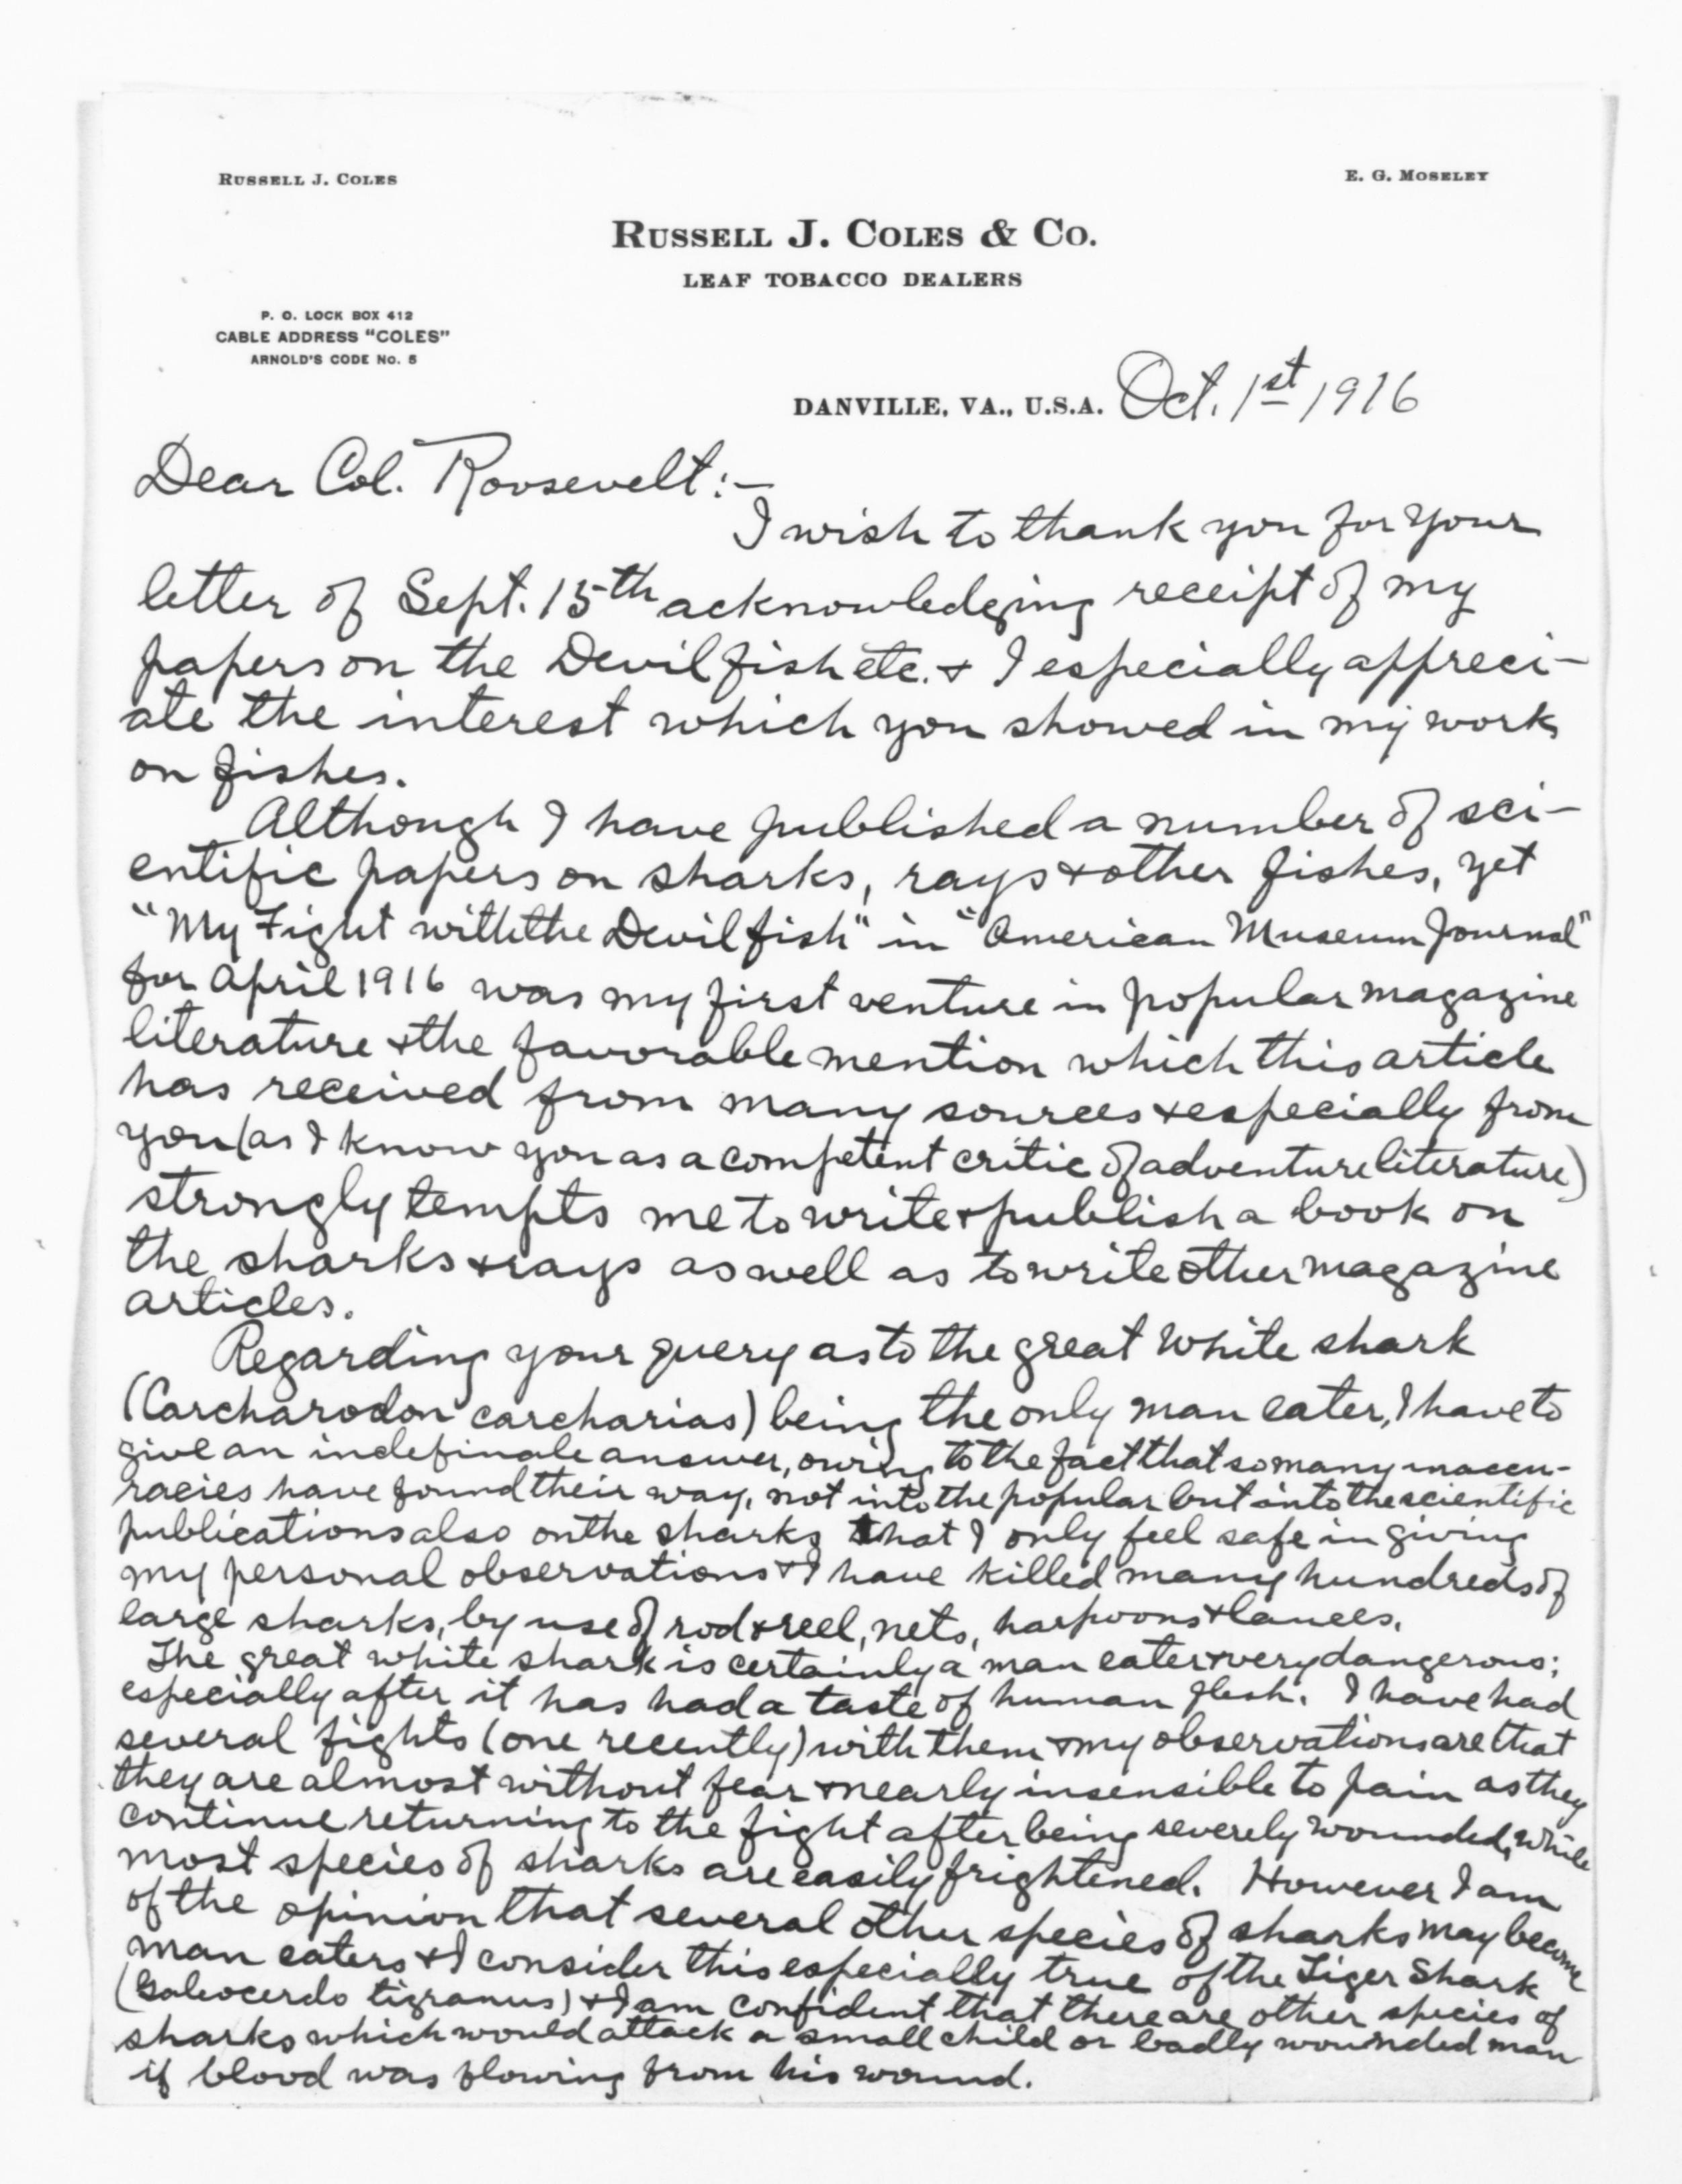 RUSSELL J. COLES
E. G. MOSELEY
RUSSELL J. COLES & CO.
LEAF TOBACCO DEALERS
P. O. LOCK BOX 412
CABLE ADDRESS "COLES"
ARNOLD'S CODE No. 5
DANVILLE, VA., U.S.A. Oct. 1st 1916
Dear Col. Roosevelt:-
I wish to thank you for your
letter of Sept. 15th acknowledging receipt of my
papers on the Devilfish etc. & I especially appreci-
ate the interest which you showed in my work
on fishes.
Although I have published a number of sci-
entific papers on sharks, rays & other fishes, yet
"My Fight with the Devilfish" in "American Museum Journal"
for April 1916 was my first venture in popular magazine
literature & the favorable mention which this article
has received from many sources & especially from
you (as I know you as a competent critic of adventure literature)
strongly tempts me to write & publish a book on
the sharks & rays as well as to write other magazine
articles.
Regarding your query as to the great white shark
(Carcharodon carcharias) being the only man eater, I have to
give an indefinale answer, owing to the fact that so many inaccu-
racies have found their way, not into the popular but into the scientific
publications also on the sharks that I only feel safe in giving
my personal observations & I have killed many hundreds of
large sharks, by use of rod & reel, nets, harpoons & lances.
The great white shark is certainly a man eater & very dangerous;
especially after it has had a taste of human flesh. I have had
several fights (one recently) with them & my observations are that
they are almost without fear & nearly insensible to pain as they
continue returning to the fight after being severely wounded, while
most species of sharks are easily frightened. However I am
of the opinion that several other species of sharks may become
man eaters & I consider this especially true of the Tiger Shark
(Galeocerdo tigranus) & I am confident that there are other species of
sharks which would attack a small child or badly wounded man
if blood was flowing from his wound.